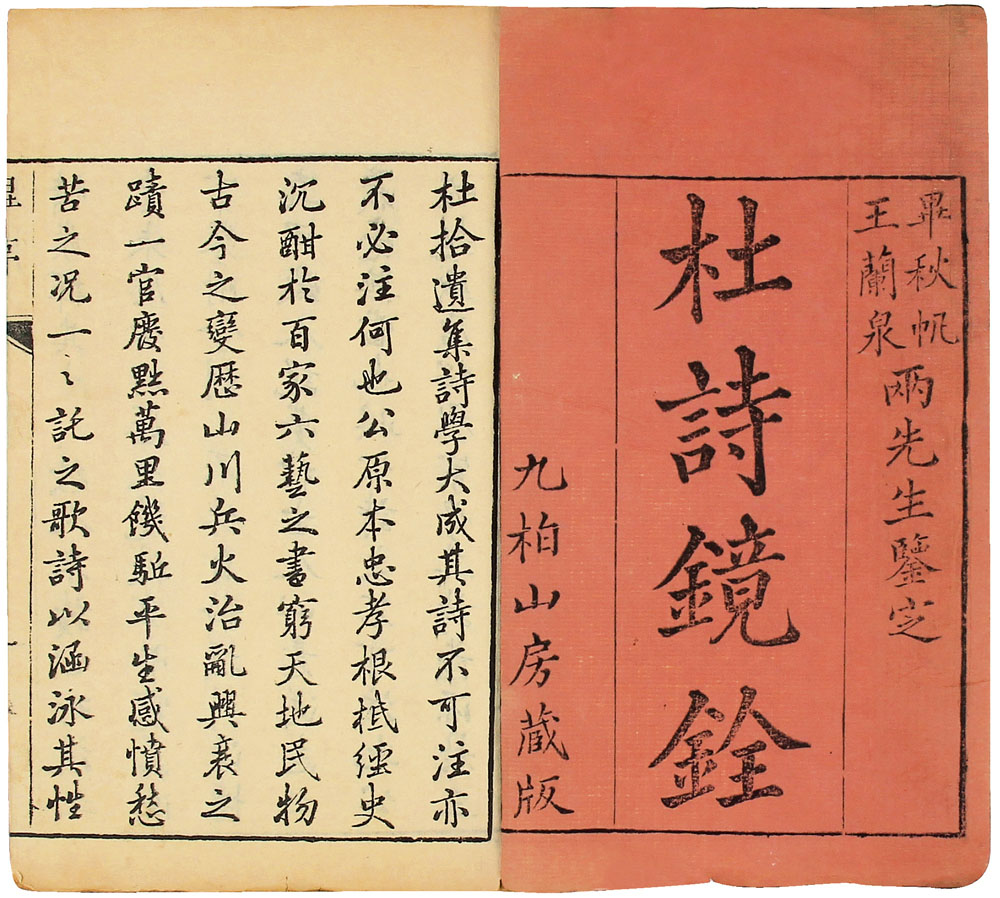 畢秋帆
王蘭泉
兩先生鑒定
杜詩鏡銓
九柏山房藏版
杜拾遺集詩學大成其詩不可注亦
不必注何也公原本忠孝根柢經史
沉酣於百家六藝之書窮天地民物
古今之變歷山川兵火治亂興衰之
蹟一官廢黜萬里饑驅平生感憤愁
苦之况一〻託之歌詩以涵泳其性